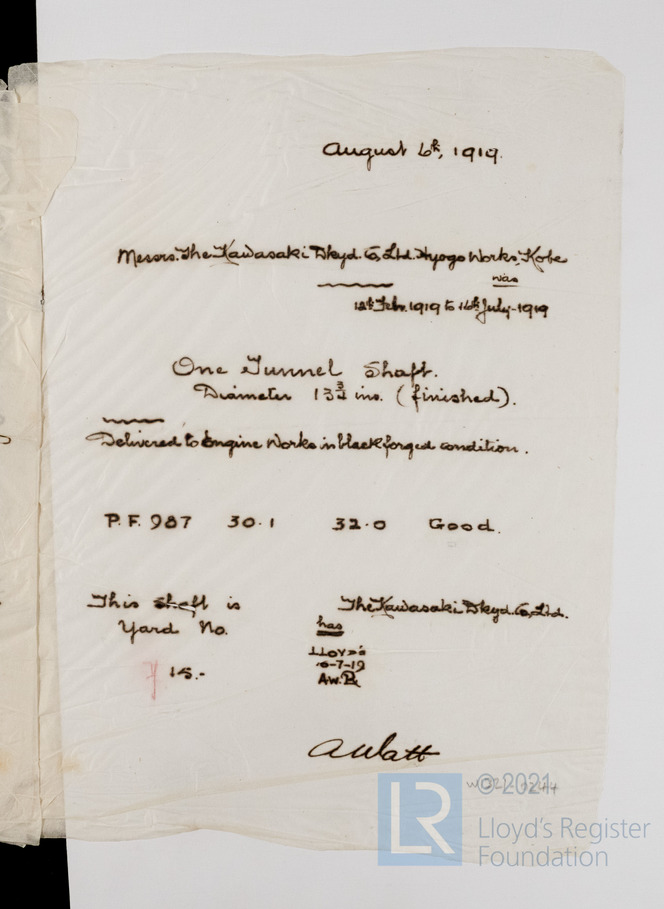 August 6th, 1919.
Messrs. The Kawasaki Dkyd. Co, Ltd. Hyogo Works, Kobe
was
12th Feb. 1919 to 16th July - 1919
One Tunnel Shaft.
Diameter 13 3/4 ins. (finished).
Delivered to Engine Works in black forged condition.
P.F. 987 30.1 32.0 Good.
This shaft is
Yard No.
The Kawasaki Dkyd. Co, Ltd.
has
LLOYD'S
-7-19
A.W.
15.-
AWatt
© 2021
LR
Lloyd's Register
Foundation